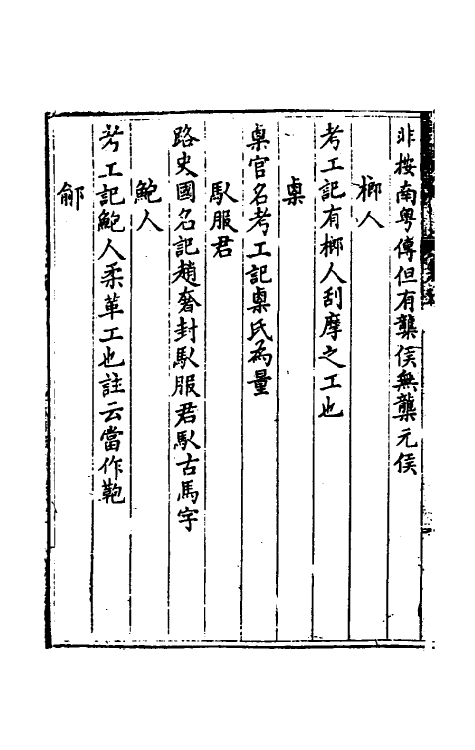 非按南粤傳但有龔侯無龔元侯
榔人
考工記有榔人刮摩之工也
㮚
㮚官名考工記㮚氏為量
馭服君
路史國名記趙奢封馭服君馭古馬字
鮑人
考工記鮑人柔革工也註云當作鞄
鄃